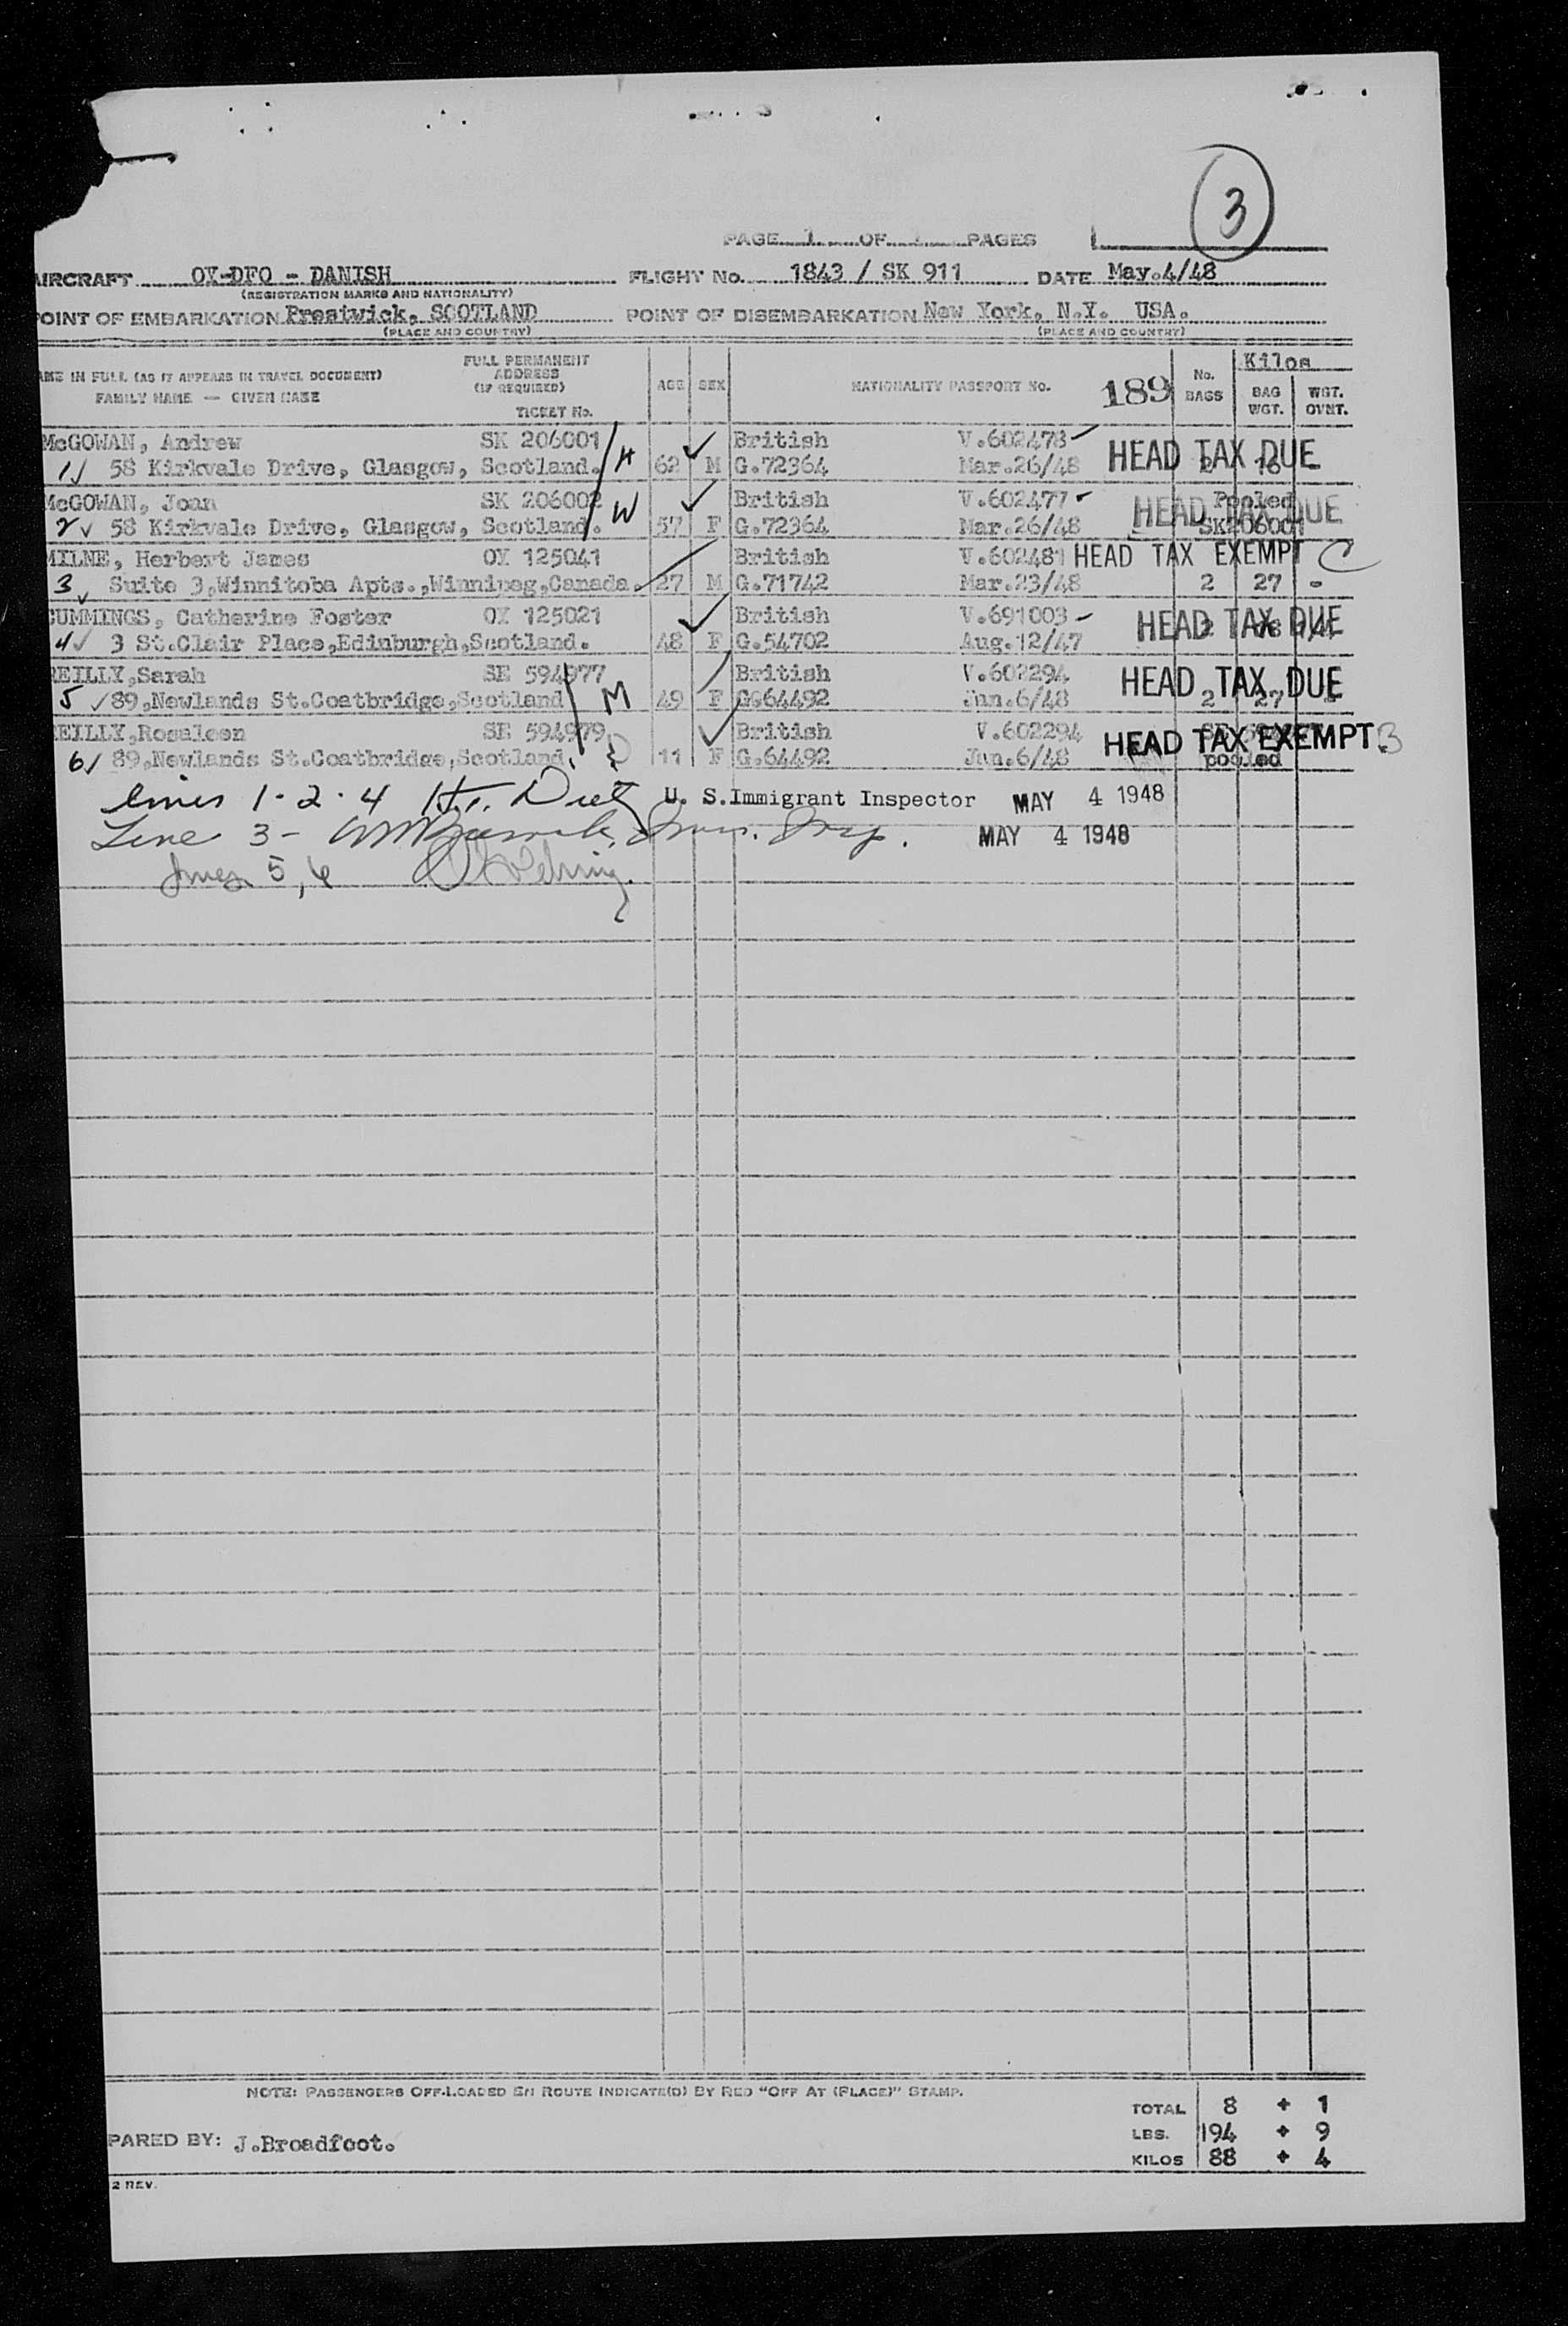 3
PAGE 1 OF PAGES
AIRCRAFT OY-DFO - DANISH FLIGHT No. 1843 / SK 911 DATE May.4/48
(REGISTRATION MARKS AND NATIONALITY)
POINT OF EMBARKATION Prestwick, SCOTLAND POINT OF DISEMBARKATION New York, N.Y. USA.
(PLACE AND COUNTRY) (PLACE AND COUNTRY)
NAME IN FULL (AS IT APPEARS IN TRAVEL DOCUMENT) FULL PERMANENT ADDRESS (IF REQUIRED) AGE SEX NATIONALITY PASSPORT No. 189 No. BAGS Kilos
FAMILY NAME — GIVEN NAME TICKET No. BAG WGT. WGT. OVWT.
McGOWAN, Andrew SK 206001 British V.602478
1 58 Kirkvale Drive, Glasgow, Scotland. H 62 M G.72364 Mar.26/48 HEAD TAX DUE 2 16
McGOWAN, Joan SK 206002 British V.602477 Pooled
2 58 Kirkvale Drive, Glasgow, Scotland. W 57 F G.72364 Mar.26/48 HEAD TAX DUE SK206001
MILNE, Herbert James OY 125041 British V.602481 HEAD TAX EXEMPT C
3 Suite 3,Winnitoba Apts.,Winnipeg,Canada. 27 M G.71742 Mar.23/48 2 27 -
CUMMINGS, Catherine Foster OY 125021 British V.691003
4 3 St.Clair Place,Edinburgh,Scotland. 48 F G.54702 Aug.12/47 HEAD TAX DUE 2
REILLY,Sarah SE 594977 British V.602294
5 89,Newlands St.Coatbridge,Scotland M 49 F G.64492 Jan.6/48 HEAD TAX DUE 2 27
REILLY,Rosaleen SE 594979 British V.602294
6 89,Newlands St.Coatbridge,Scotland. D 11 F G.64492 Jan.6/48 HEAD TAX EXEMPT B pooled
lines 1-2-4 U. S.Immigrant Inspector MAY 4 1948
Line 3 - MAY 4 1948
lines 5,6
NOTE: PASSENGERS OFF-LOADED EN ROUTE INDICATE(D) BY RED "OFF AT (PLACE)" STAMP.
TOTAL 8 + 1
LBS. 194 + 9
PARED BY: J.Broadfoot.
KILOS 88 + 4
2 REV.